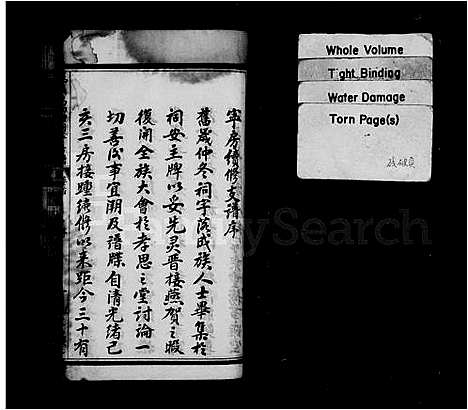 寧房續修支譜序
舊歲仲冬祠宇落成族人士畢集於
祠安主牌以妥先灵晋接燕賀之暇
復開全族大會於孝思之堂討論一
切善后事宜開及譜牒自清光緒己
亥三房接踵續修以来距今三十有
Whole Volume
Tight Binding
Water Damage
Torn Page(s)
残破頁
FamilySearch